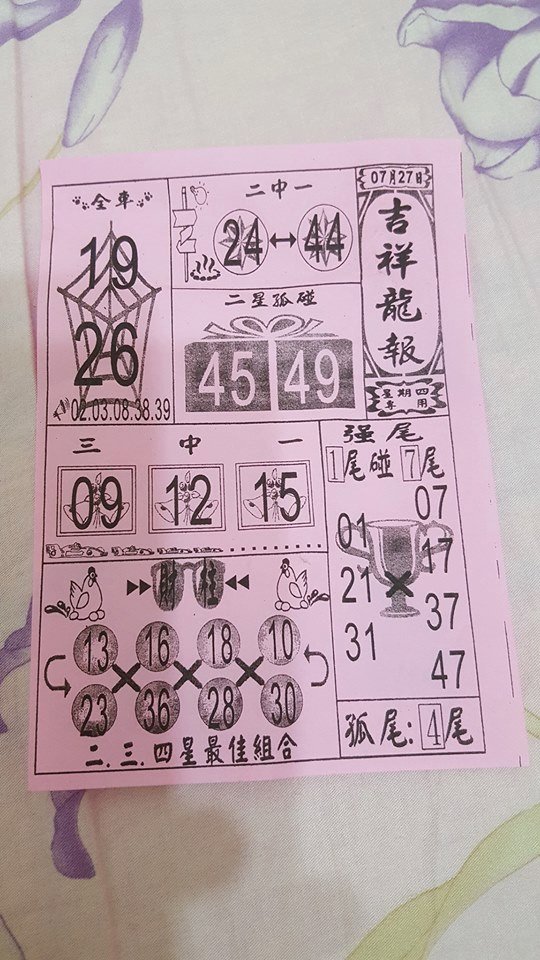 07月27日
吉祥龍報
星期四
專用
全車
19
26
02.03.08.38.39
二中一
24 ↔ 44
二星孤碰
45 49
三 中 一
09 12 15
强尾
1尾碰7尾
01 07
21 × 17
31 37
47
財柱
13 16 18 10
× × ×
23 36 28 30
二.三.四星最佳組合
孤尾:4尾